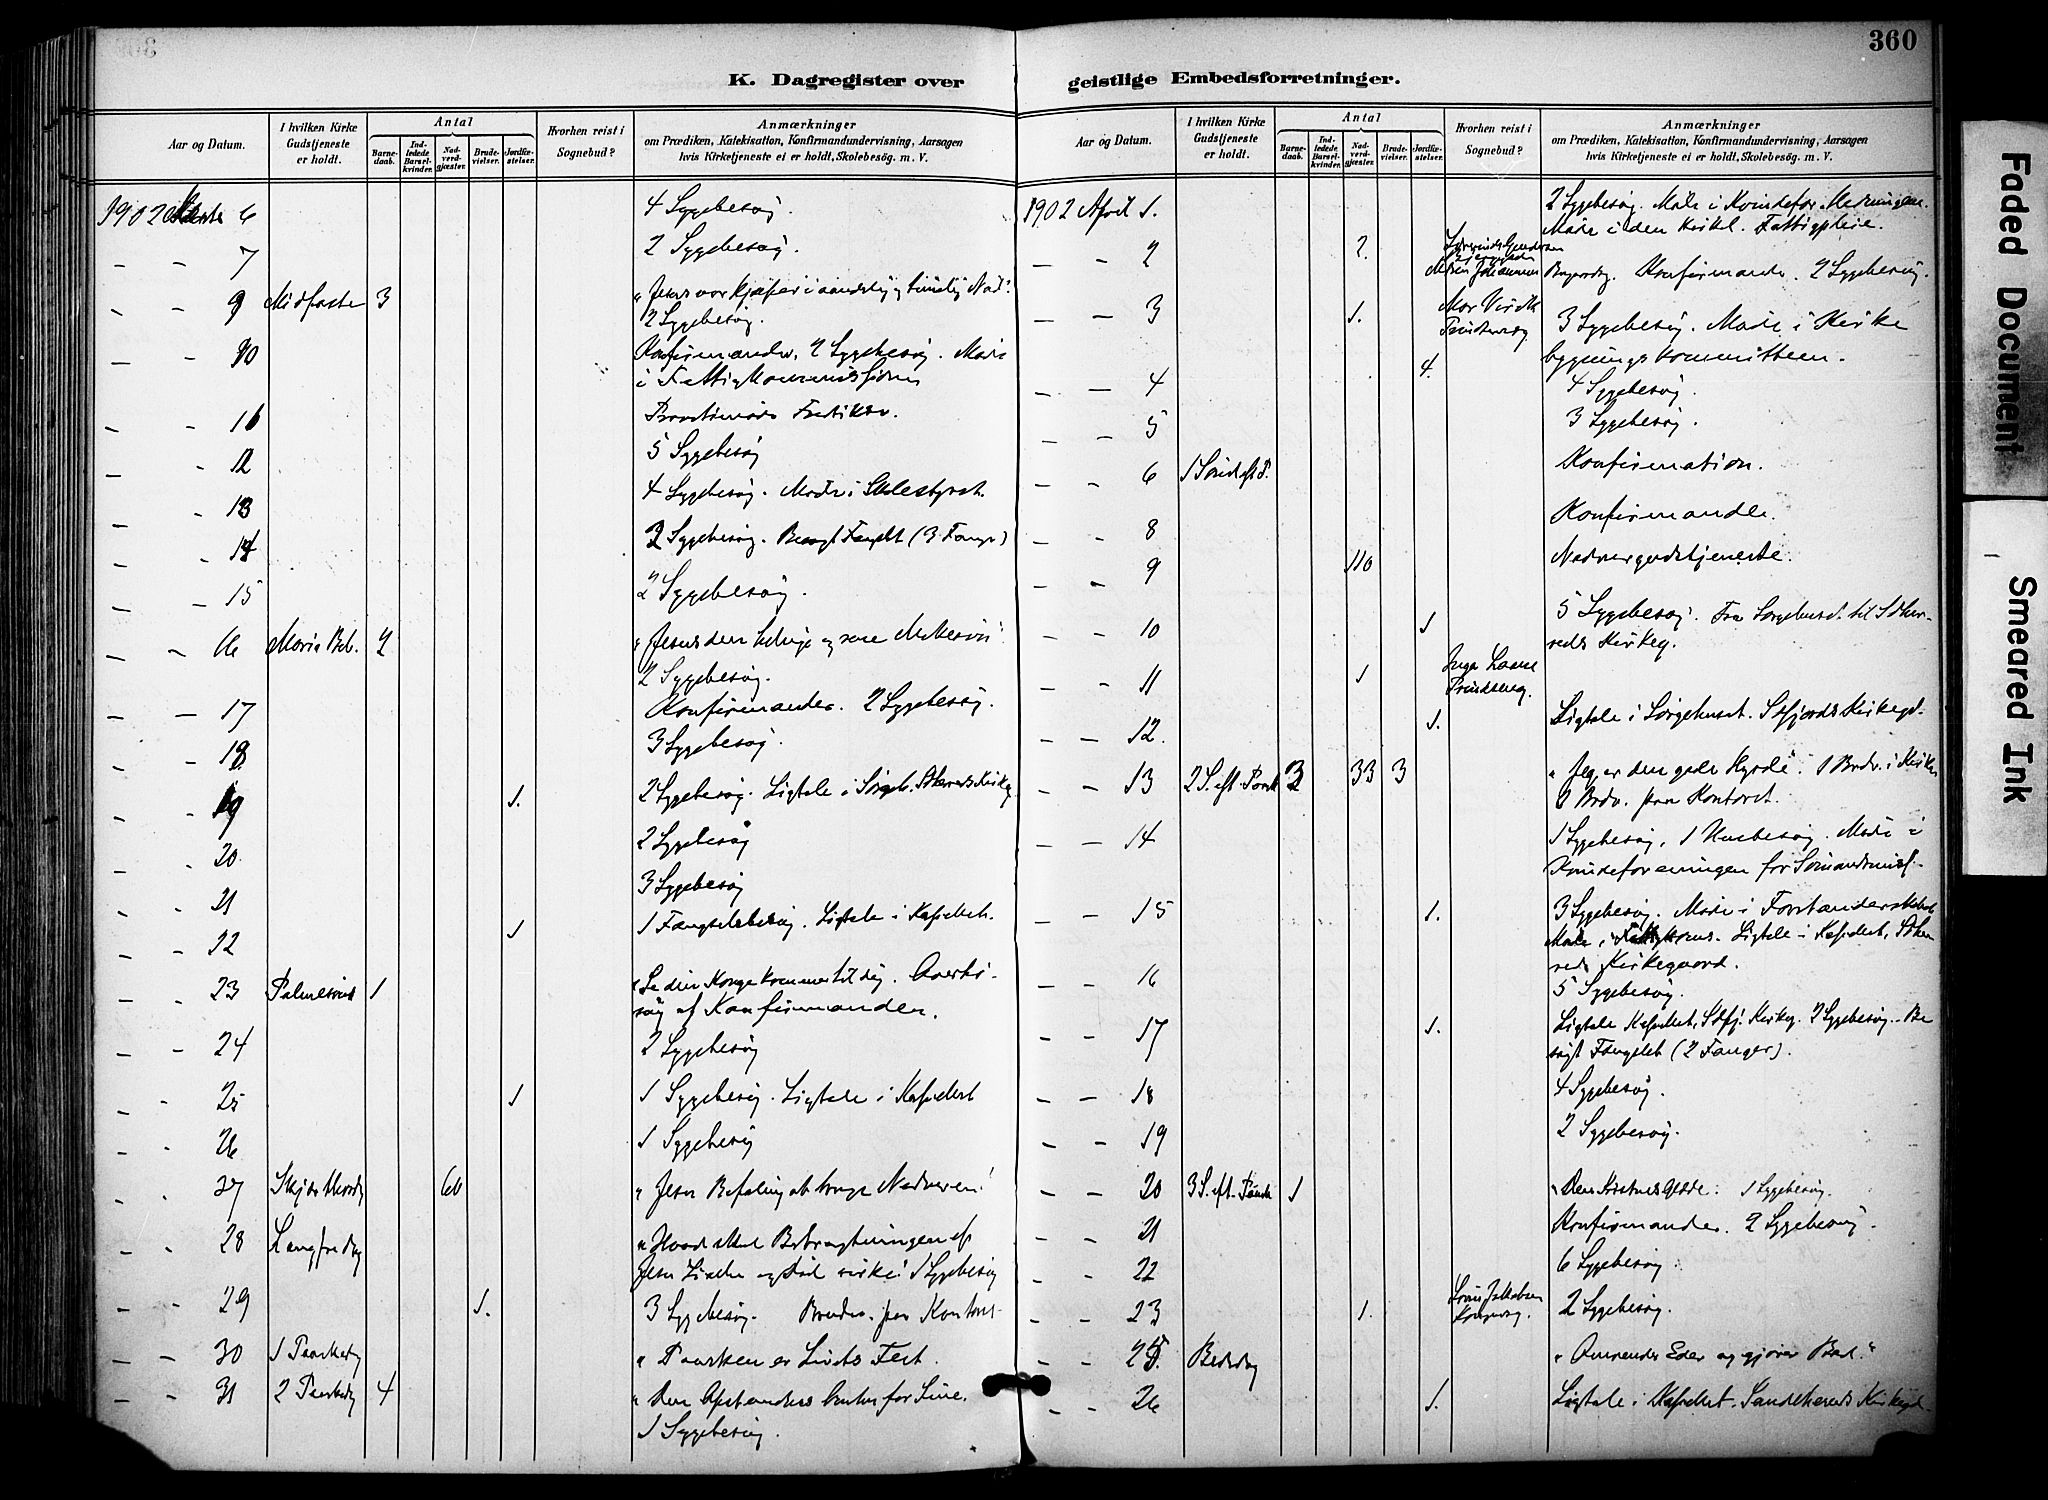 360
K. Dagregister over
geistlige Embedsforretninger.
Aar og Datum.
I hvilken Kirke Gudstjeneste er holdt.
Antal
Barnedaab.
Indledede Barselkvinder.
Nadverdgjæster.
Brudevielser.
Jordfæstelser.
Hvorhen reist i Sognebud?
Anmærkninger
om Prædiken, Katekisation, Konfirmandundervisning, Aarsagen
hvis Kirketjeneste ei er holdt, Skolebesög. m. V.
1902 6 4 Sygebesøg.
– – 7 2 Sygebesøg.
– – 9 Midfaste 3 "Jesus vor Hjælper i aandelig og timelig Nød".
2 Sygebesøg.
– – 10 Konfirmander. 2 Sygebesøg. Møde
i Fattigkommissionen
– – 11
– 12 5 Sygebesøg
– – 13 4 Sygebesøg. Møde i Skolestyret.
– – 14 2 Sygebesøg. Besøgt Fængslet (3 Fanger)
– – 15 2 Sygebesøg.
– – 16 Mariæ Beb. 2 "Jesus den hellige og rene
2 Sygebesøg.
– – 17 Konfirmander. 2 Sygebesøg.
– 18 3 Sygebesøg.
– – 19 1. 2 Sygebesøg. Ligtale i Sørgeh. Kirkeg.
– 20 2 Sygebesøg
– – 21 3 Sygebesøg
– – 22 1 1 Fængselsbesøg. Ligtale i Kapellet.
– – 23 Palmesønd 1 "Se din Konge kommer til dig. Overhø-
ring af Konfirmander.
– – 24 2 Sygebesøg
– – 25 1 1 Sygebesøg. Ligtale i Kapellet
– – 26 1 Sygebesøg
– – 27 Skjærthorsdg 60 "Jesu Befaling at bruge Nadveren"
– – 28 Langfredag "Hvad skal Betragtningen af
Jesu Lidelse og Død virke" 1 Sygebesøg
– – 29 1. 3 Sygebesøg. Brudev. paa Kontoret
– – 30 1 Paaskedg "Paasken er Livets Fest.
– – 31 2 Paaskedg 4 "Den Opstandnes Omhu for Sine.
1 Sygebesøg.
Aar og Datum.
I hvilken Kirke Gudstjeneste er holdt.
Antal
Barnedaab.
Indledede Barselkvinder.
Nadverdgjæster.
Brudevielser.
Jordfæstelser.
Hvorhen reist i Sognebud?
Anmærkninger
om Prædiken, Katekisation, Konfirmandundervisning, Aarsagen
hvis Kirketjeneste ei er holdt, Skolebesög. m. V.
1902 April 1. 2 Sygebesøg. Møde i Kvindefor.
Møde i den Fattigpleie.
– – 2 2. Konfirmander. 2 Sygebesøg.
– – 3 1. 3 Sygebesøg. Møde i Kirke
bygningskommitteen.
– – 4 4. 4 Sygebesøg.
– – 5 3 Sygebesøg.
– – 6 1 Sønd eft P. Konfirmation.
– – 8 Konfirmander.
– – 9 110 Nadvergudstjeneste.
– – 10 1 5 Sygebesøg. Fra Sørgehuset til Sdher-
reds Kirkeg.
– – 11 1 Inga
– – 12. 1. Ligtale i Sørgehuset. Sdfjords Kirkegd.
– – 13 2 S. eft. Paask 3 33 3 "Jeg er den gode Hyrde". 1 Brdv. i Kirken
2 Brdv. paa Kontoret.
– – 14 1 Sygebesøg, 1 Husbesøg. Møde i
Kvindeforeningen for Sømandsmiss.
– – 15 1. 3 Sygebesøg. Møde i Forstanderskabet
Møde i Ligtale i Kapellet, Sdher
reds Kirkegaard.
– – 16 5 Sygebesøg.
– – 17 1. Ligtale Kapellet, Sdfj. Kirkeg. 2 Sygebesøg. Be
søgt Fængslet (2 Fanger).
– – 18 4 Sygebesøg.
– – 19 2 Sygebesøg.
– – 20 3 S. eft. Paask 1 "Den Kristnes Glæde. 1 Sygebesøg.
– – 21 Konfirmander. 2 Sygebesøg.
– – 22 6 Sygebesøg
– – 23 1. 2 Sygebesøg.
– – 25. Bededag "Omvender Eder og gjører Bod."
– – 26 1. Ligtale i Kapellet. Sandeherreds Kirkegd.
Faded Document
Smeared Ink